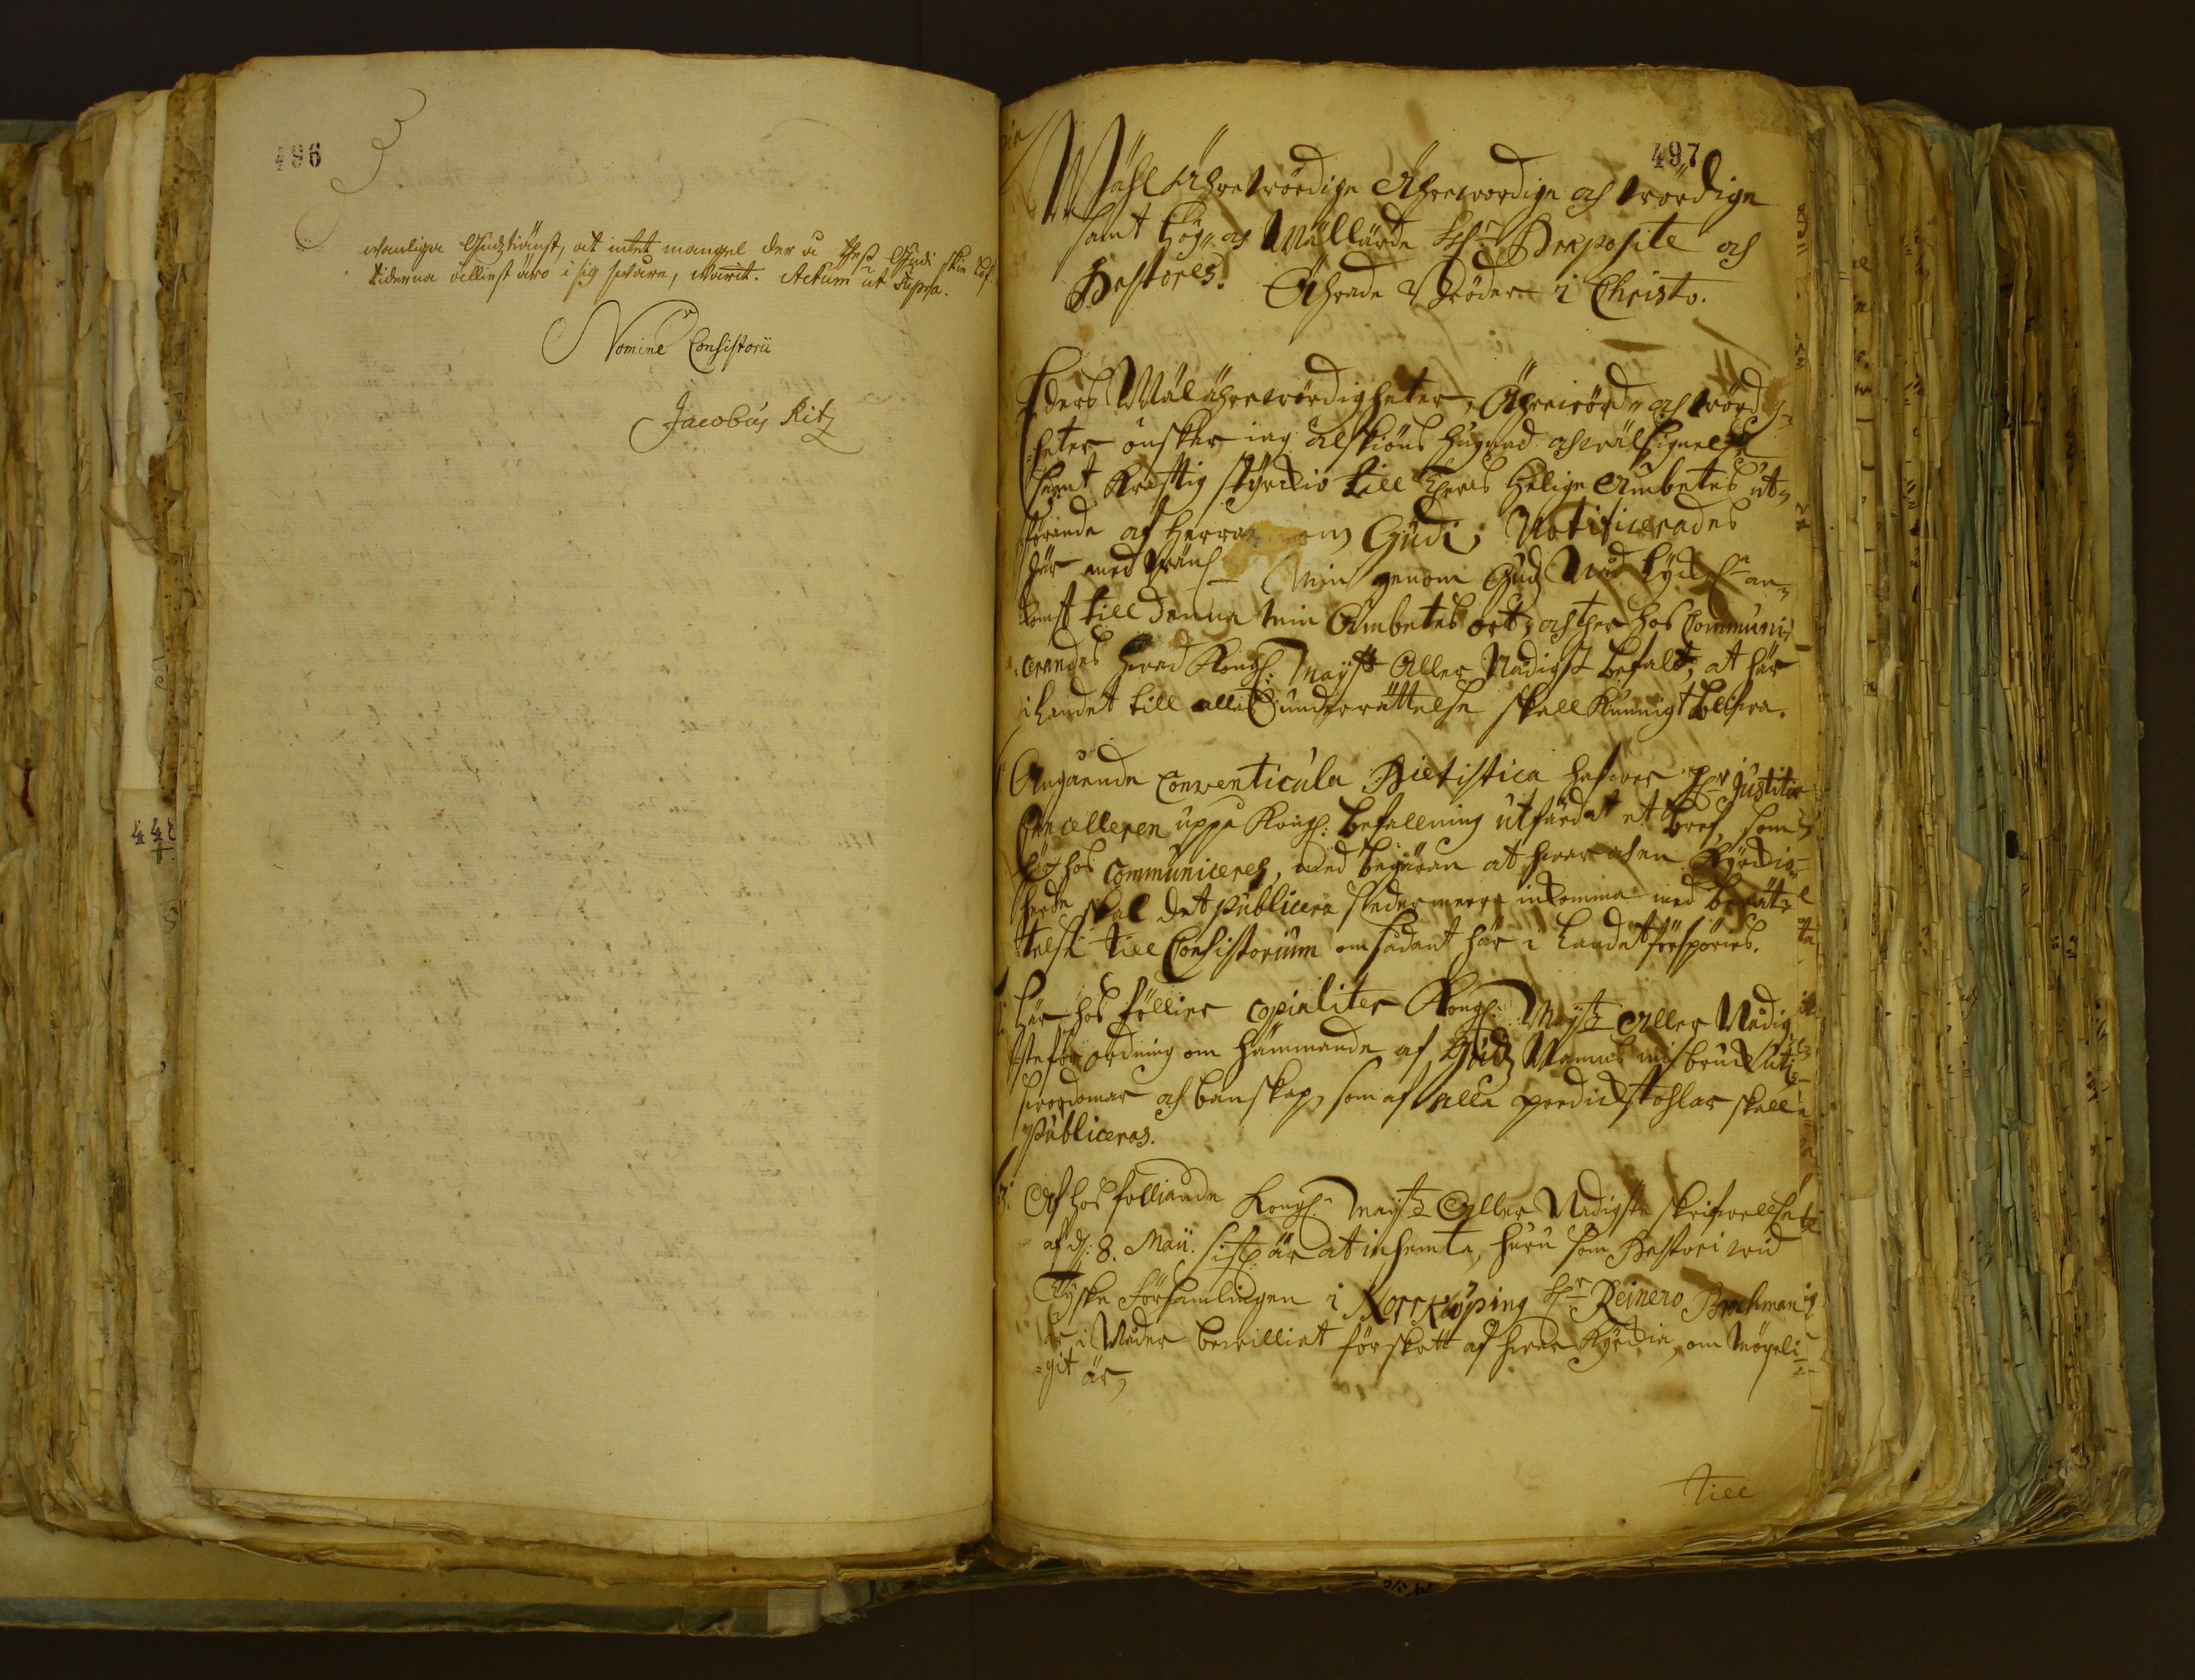 496
wanliga Gudztiänst, at intet mangel der å
tiderna ällliest äro i sig swåre, warit. Actum ut supra.
Nomine Consistorii
Jacobus Ritz
448
497
Wähl Ährewördige Ährewördige och wördige
samt Hög- och Wällärde H:r Præposite och
Pastores. Ährade Bröder i Christo.
Eders Wälährewördigheter, Ährewörd- och wördig-
heter önsker iag alskiöns hugnad och wälsignelse
samt Krafftig styrckio till theres helige Ambetes ut-
förande af Herran Gudi; Notificerades
här med min genom Gudz Nåd lyckl:n an-
komst till denna min Ambetes ort, och ther hos Communi-
cerandes hwad Kongl: Mayst Aller Nådigst befalt, at här
i landet till allas underrättelse skall kunnigt blifwa.
Angående Conventicula Pietistica hafwer H:r Justitiæ
Cancelleren uppå Kongl: befallning utfärdat et bref, som
här hos communiceres, med begäran at hwar och en Kyrckio-
herde skal det publicera sedermeera inkomma med berät-
telse till Consistorium om sådant här i Landet förspöries.
Här hos föllier copialiter Kongl: Mayst:z Aller Nådig-
ste förordning om hämmande af Gudz Namns misbruk uti
swordomar och banskap, som af alla predickstohlar skall
publiceras.
3. Af hos folliande Kongl: Mayst:z Aller Nådigste skrifwellse
af d: 8. Maii. sistl: är at inhemta, huru som Pastori wid
Tyske Församlingen i Norrkiöping H:r Reinero Brochman
är i Nåder bewilliat förskott af hwar Kyrckia, om Mögeli-
git är,
till